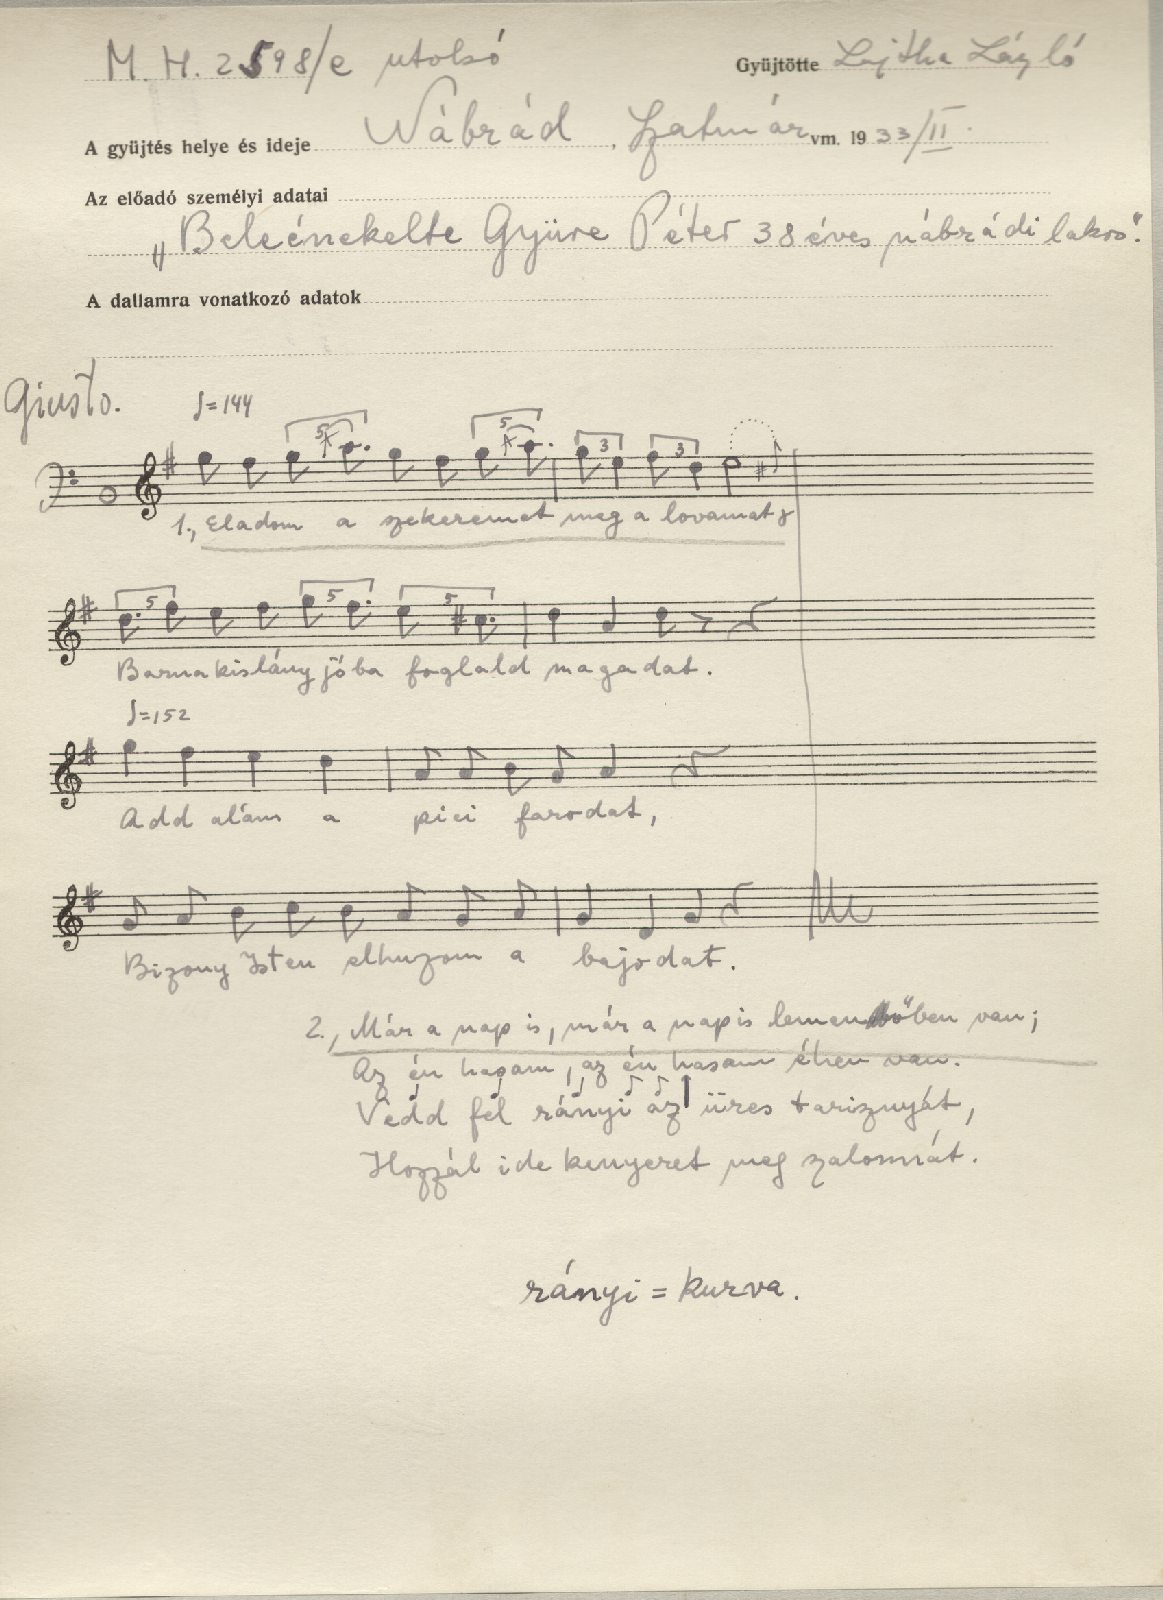 M. H. 2598/e utolsó
Gyüjtötte Lajtha László
A gyüjtés helye és ideje Nábrád, Szatmár vm. 1933/II.
Az előadó személyi adatai
"Beleénekelte Gyüre Péter 38 éves nábrádi lakos".
A dallamra vonatkozó adatok
Giusto.
♩=144
5 5 3 3
1., Eladom a szekeremet meg a lovamat s
5 5 5
Barna kislány jóba foglald magadat.
♩=152
Add alám a pici farodat,
Bizony Isten elhuzom a bajodat.
2., Már a nap is, már a nap is lemenőben van;
Az én hasam, az én hasam éhen van.
Vedd fel rányi az üres tarisznyát,
Hozzál ide kenyeret meg szalonnát.
rányi = kurva.